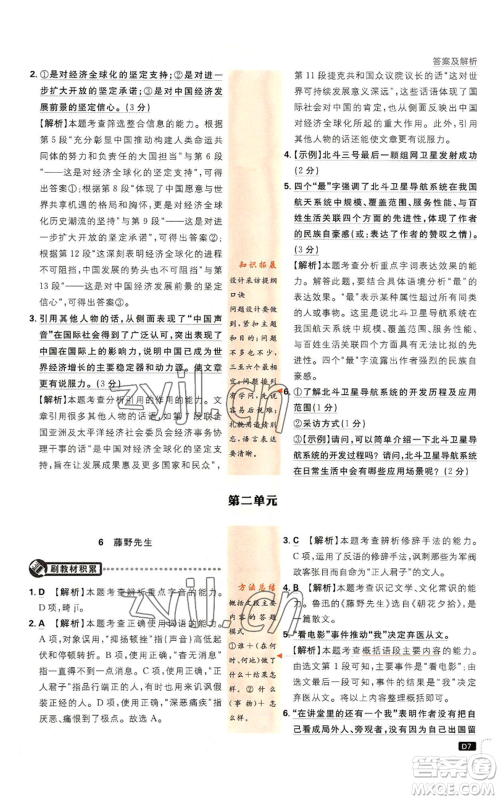 答案及解析
2. ①是对经济全球化的坚定支持；②是对进一步扩大开放的坚定承诺；③是对中国经济发展前景的坚定信心。（3 分）
【解析】本题考查筛选整合信息的能力。根据第 5 段“充分彰显中国推动构建人类命运共同体的努力和大国担当”与第 6 段“——这是对经济全球化的坚定支持”，可得出答案①；“体现了中国愿意与世界共享机遇的格局和胸怀，更是对经济全球化历史潮流的坚定支持”，可得出答案②；“——这深刻表明经济全球化的进程不可阻挡，中国对外开放的进程也不可阻挡，中国经济发展的前景不可估量”，可得出答案③。
3. 引用其他人物的话，从侧面表现了“中国声音”在国际社会得到了广泛认可，突出了中国的国际影响，表明中国已经成为世界经济增长的主要稳定器和动力源。使文章更有说服力。（3 分）
【解析】本题考查分析引用的作用的能力。文章引用了很多人物的话，如第 7 段联合国亚洲及太平洋经济社会委员会经济事务协理干事的话“中国对经济全球化的坚定支持，以及更大范围的对外开放，不仅造福中国，也有利于亚太地区更多国家和民众”，
第 11 段捷克共和国众议院议长的话“这对世界的可持续发展意义深远”，这些话语体现了国际社会对中国的评价，突出中国在世界经济增长中的作用。此外，引用国际组织和其他人物的话还能使文章更有说服力。
4. 【示例】北斗三号最后一颗组网卫星发射成功（2 分）
5. 四个“最”字强调了北斗卫星导航系统在我国航天系统中规模、覆盖范围、服务性能、与百姓生活关联四个方面的先进性，（2 分）体现了作者的民族自豪感，（1 分）表达了作者的赞叹之情。（1 分）
【解析】本题考查分析重点词字表达效果的能力。解答时，要结合具体语境分析“最”字的表达效果。“最”表示某种属性超过所有同类的人或事物，四个“最”字强调了北斗卫星导航系统在我国航天系统中规模、覆盖范围、服务性能、与百姓生活关联四个方面的先进性和重要性。四个“最”字流露出作者强烈的民族自豪感。
6. ①了解北斗卫星导航系统的开发历程及应用范围（2 分）
②【示例】请问：我们将如何将北斗卫星导航系统在日常生活中普及应用呢？（2 分）
知识拓展
设计采访提纲口诀
问题设计要切主题，问题不多也不少，三至六个最合理；问题提到有学问，先说称呼要牢记，礼貌用语不可少，表达要清晰。
第二单元
6 藤野先生
刷教材积累
1. D 【解析】本题考查辨析重点字音的能力。D 项，畸 jī。
2. A 【解析】本题考查辨析词语使用正误的能力。A 项，使用正确，“抑扬顿挫”指声音的高低起伏和停顿转折。B 项，语义矛盾，“杳无消息”指一直得不到一点消息。C 项，使用正确，“正人君子”指品行端正的人，现在多用来讽刺假装正经的人。D 项，使用正确，“深恶痛疾”指厌恶、痛恨到极点。故选 A。
方法总结
概括文段主要内容的答题模式
①谁＋（在何时、何地）做了什么
②什么事怎么样
3. C 【解析】本题考查辨析修辞手法的能力。C 项，没有使用反语的修辞手法，这里是鼓励文章写得多，因此为“正人君子”深恶痛疾。
4. B 【解析】本题考查识记文学、文化常识的能力。鲁迅的《藤野先生》选自《朝花夕拾》，B 项表述有误。
5. “看电影”事件推动“我”决定弃医从文。
【解析】本题考查概括语段主要内容的能力。由选文第 1 段可知，主要事件是“看电影”事件；由选文第 2 段可知，结果是促使“我”决定弃医从文。据此进行概括即可。
6. “在讲堂里的还有一个我”表明作者不以自己看成局外人、旁观者，没有因为自己是留日
D7
zyjl.cn